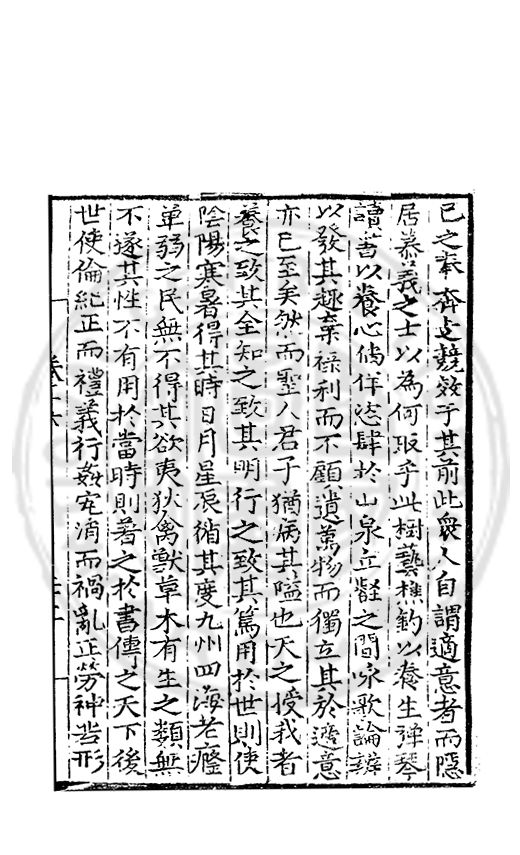 已之奉奔走競效于其前此衆人自謂適意者而隱
居慕義之士以為何取乎此樹藝樵釣以養生彈琴
讀書以養心倘佯恣肆於山泉立壑之間咏歌論辨
以發其趣棄祿利而不顧遺萬物而獨立其於適意
亦已至矣然而聖人君子猶病其隘也天之授我者
養之致其全知之致其明行之致其篤用於世則使
陰陽寒暑得其時日月星辰循其度九州四海老癃
單弱之民無不得其欲夷狄禽獸草木有生之類無
不遂其性不有用於當時則著之於書傳之天下後
世使倫紀正而禮義行姦宄消而禍亂正勞神苦形